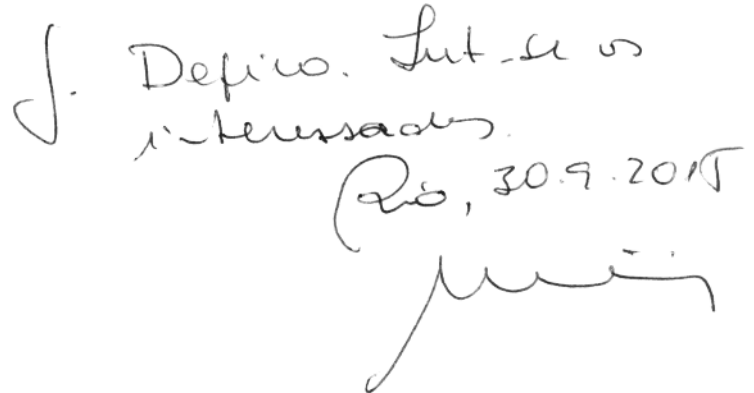 J. Defiro. Int-se os
interessados.
Rio, 30.9.2015